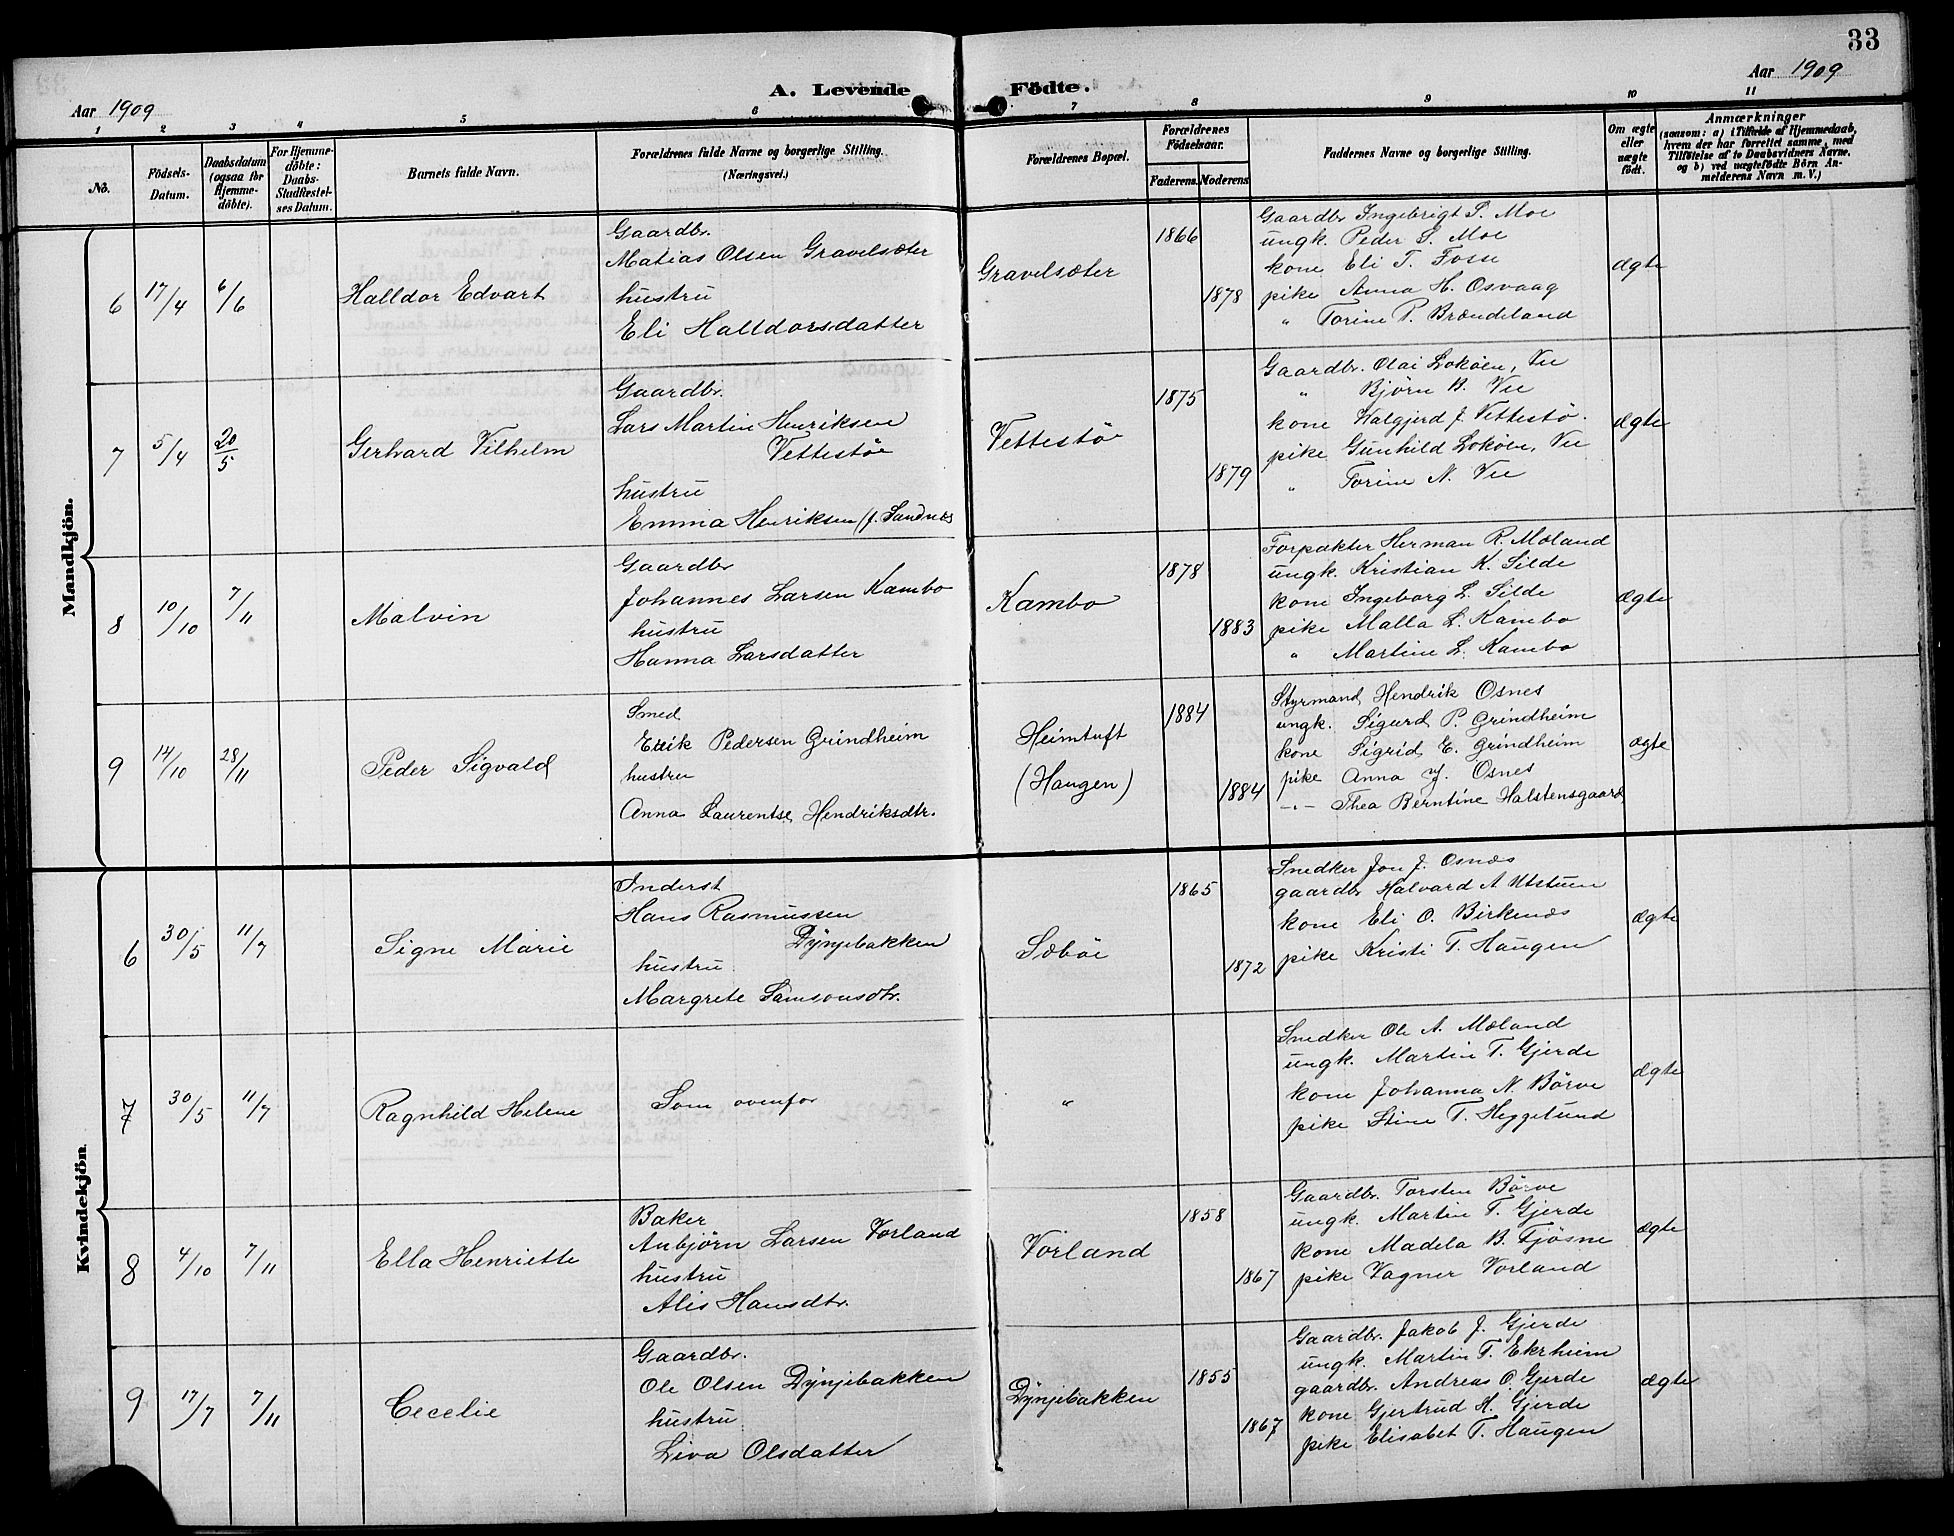 33
Aar 1909
A. Levende Födte.
Aar 1909
1 2 3 4 5 6 7 8 9 10 11
No.
Födsels-Datum.
Daabsdatum (ogsaa for Hjemme-döbte).
For Hjemme-döbte: Daabs-Stadfæstel-ses Datum.
Barnets fulde Navn.
Forældrenes fulde Navne og borgerlige Stilling.
(Næringsvei.)
Forældrenes Bopæl.
Forældrenes Födselsaar.
Faderens. Moderens.
Faddernes Navne og borgerlige Stilling.
Om ægte eller uægte födt.
Anmærkninger
(saasom: a) i Tilfælde af Hjemmedaab,
hvem der har forrettet samme, med
Tilföielse af to Daabsvidners Navne.
og b) ved uægtefödte Börn An-
melderens Navn m. V.)
Mandkjön.
6 17/4 6/6 Halldor Edvart
Gaardbr.
Matias Olsen Gravelsæter
hustru
Eli Halldorsdatter
Gravelsæter
1866
1878
Gaardbr Ingebrigt P. Moe
ungk. Peder S. Moe
kone Eli T. Fosse
pike Anna H. Osvaag
" Torine P. Brændeland
ægte
7 5/4 20/5 Gerhard Vilhelm
Gaardbr.
Lars Martin Henriksen
Vettestø
hustru
Emma Henriksen (f. Sandnes
Vettestø
1875
1879
Gaardbr. Olai Lokøen, Vee
" Bjørn B. Vee
kone Walgjerd J. Vettestø.
pike Gunhild Lokøen, Vee
" Torine N. Vee
ægte
8 10/10 7/11 Malvin
Gaardbr
Johannes Larsen Kambo
hustru
Hanna Larsdatter
Kambo
1878
1883
Forpakter Herman R. Mæland
ungk. Kristian K. Silde
kone Ingeborg L. Silde
pike Malla L. Kambo
" Martine L. Kambo
ægte
9 14/10 28/11 Peder Sigvald
Smed
Erik Pedersen Grindheim
hustru
Anna Laurentse Hendriksdtr.
Heimtuft
(Haugen)
1884
1884
Styrmand Hendrik Osnes
ungk. Sigurd P. Grindheim
kone Sigrid E. Grindheim
pike Anna J. Osnes
-"- Thea Berntine Halstensgaard
ægte
Kvindekjön
6 30/5 11/7 Signe Marie
Inderst
Hans Rasmussen
Dynjebakken
hustru
Margrete Samsonsdtr.
Sæbøe
1865
1872
Snedker Jon J. Osnæs
gaardbr Halvard A Utstuen
kone Eli O. Birkenæs
pike Kristi T. Haugen
ægte
7 30/5 11/7 Ragnhild Helene
Som ovenfor
"
Snedker Ole A. Mæland
ungk. Martin T. Gjerde
kone Johanna N Børve
pike Stine T. Heggelund
ægte
8 4/10 7/11 Ella Henriette
Baker
Anbjørn Larsen Vorland
hustru
Alis Hansdtr.
Vorland
1858
1867
Gaardbr. Torsten Børve
ungk. Martin T. Gjerde
kone Madela B. Tjøsne
pike Vagner Vorland
ægte
9 17/7 7/11 Cecelie
Gaardbr.
Ole Olsen Dynjebakken
hustru
Liva Olsdatter
Dynjebakken
1855
1867
Gaardbr. Jakob J. Gjerde
ungk. Martin T. Ekrheim
gaardbr. Andreas O. Gjerde
kone Gjertrud H. Gjerde
pike Elisabet T. Haugen
ægte